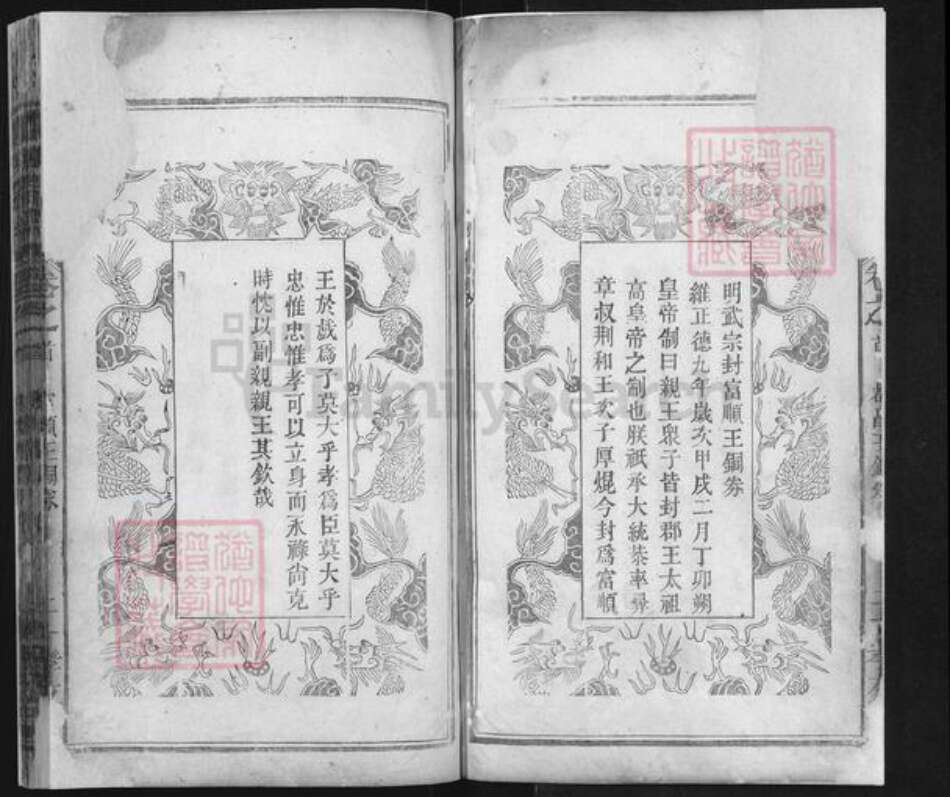 明武宗封富順王銅券
維正德九年歲次甲戌二月丁卯朔
皇帝制曰親王眾子皆封郡王太祖
高皇帝之制也朕祇承大統恭率彝
章叔荆和王次子厚焜今封為富順
王於戲為子莫大乎孝為臣莫大乎
忠惟忠惟孝可以立身而永祿尚克
時忱以副親親王其欽哉
FamilySearch